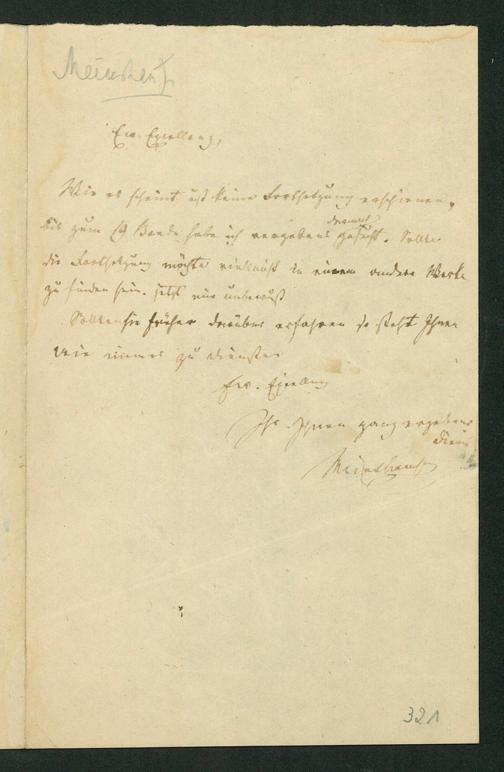 Ew. Excellenz,
Wie es scheint ist keine Fortsetzung erschienen,
bis zum 19 Bande habe ich vergebens darnach gesucht. Sollte
die Fortsetzung möchte vielleicht in einem andern Werke
zu finden sein. jetzt mir unbewußt
Sollten Sie früher darüber erfahren so steht Ihnen
wie immer zu Diensten
Ew. Excellenz
Ihr Ihnen ganz ergebener
Diener
321